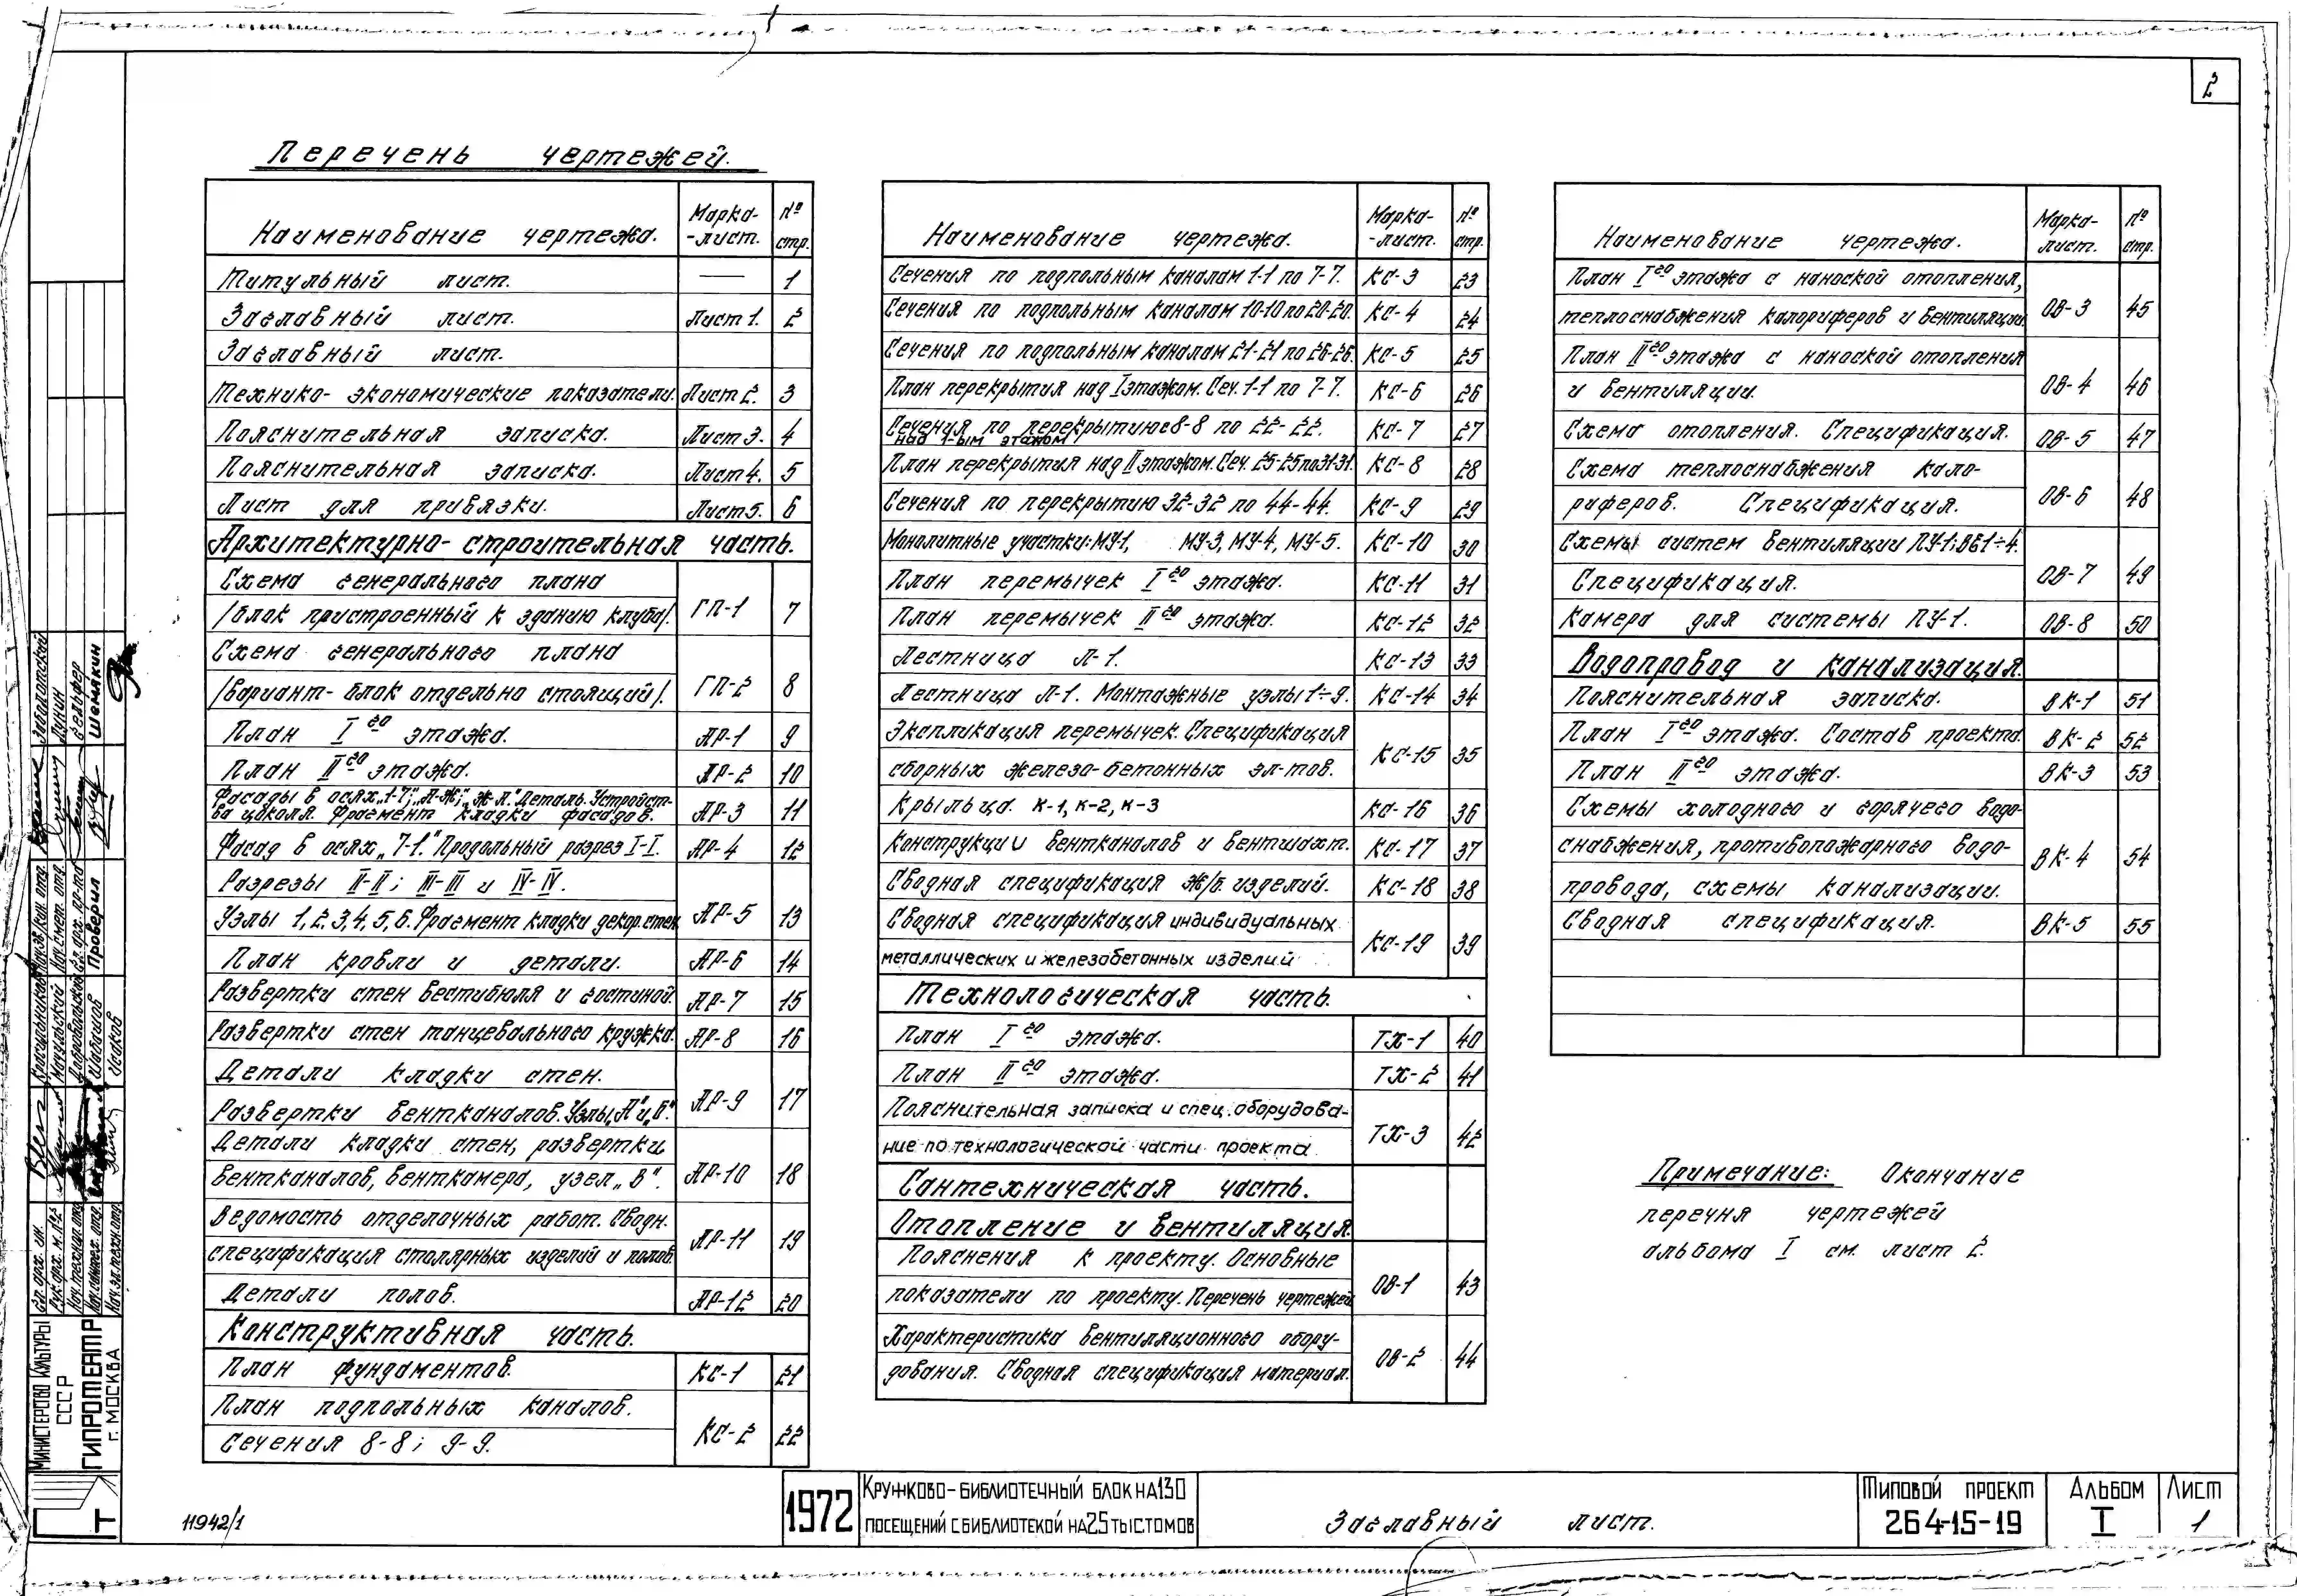 2
Перечень чертежей.
Наименование чертежа. Марка-лист. № стр.
Титульный лист. — 1
Заглавный лист. Лист 1. 2
Заглавный лист.
Технико-экономические показатели. Лист 2. 3
Пояснительная записка. Лист 3. 4
Пояснительная записка. Лист 4. 5
Лист для привязки. Лист 5. 6
Архитектурно-строительная часть.
Схема генерального плана
/блок пристроенный к зданию клуба/. ГП-1 7
Схема генерального плана
/вариант-блок отдельно стоящий/. ГП-2 8
План I го этажа. АР-1 9
План II го этажа. АР-2 10
Фасады в осях „1-7"; „А-Ж"; „Ж-А". Деталь. Устройст-
ва цоколя. Фрагмент кладки фасадов. АР-3 11
Фасад в осях „7-1." Продольный разрез I-I. АР-4 12
Разрезы II-II; III-III и IV-IV.
Узлы 1, 2, 3, 4, 5, 6. Фрагмент кладки декор. стен. АР-5 13
План кровли и детали. АР-6 14
Развертки стен вестибюля и гостиной. АР-7 15
Развертки стен танцевального кружка. АР-8 16
Детали кладки стен.
Развертки вентканалов. Узлы „А" и „Б". АР-9 17
Детали кладки стен, развертки
вентканалов, венткамера, узел „В". АР-10 18
Ведомость отделочных работ. Сводн.
спецификация столярных изделий и полов. АР-11 19
Детали полов. АР-12 20
Конструктивная часть.
План фундаментов. КС-1 21
План подпольных каналов.
Сечения 8-8; 9-9. КС-2 22
Наименование чертежа. Марка-лист. № стр.
Сечения по подпольным каналам 1-1 по 7-7. КС-3 23
Сечения по подпольным каналам 10-10 по 20-20. КС-4 24
Сечения по подпольным каналам 21-21 по 26-26. КС-5 25
План перекрытия над I этажом. Сеч. 1-1 по 7-7. КС-6 26
Сечения по перекрытию 8-8 по 22-22. КС-7 27
над 1-ым этажом
План перекрытия над II этажом. Сеч. 25-25 по 31-31. КС-8 28
Сечения по перекрытию 32-32 по 44-44. КС-9 29
Монолитные участки: МУ-1, МУ-3, МУ-4, МУ-5. КС-10 30
План перемычек I го этажа. КС-11 31
План перемычек II го этажа. КС-12 32
Лестница Л-1. КС-13 33
Лестница Л-1. Монтажные узлы 1÷9. КС-14 34
Экспликация перемычек. Спецификация
сборных железо-бетонных эл-тов. КС-15 35
Крыльца. К-1, К-2, К-3 КС-16 36
Конструкции вентканалов и вентшахт. КС-17 37
Сводная спецификация ж/б. изделий. КС-18 38
Сводная спецификация индивидуальных
металлических и железобетонных изделий КС-19 39
Технологическая часть.
План I го этажа. ТХ-1 40
План II го этажа. ТХ-2 41
Пояснительная записка и спец. оборудова-
ние по технологической части проекта. ТХ-3 42
Сантехническая часть.
Отопление и вентиляция.
Пояснения к проекту. Основные
показатели по проекту. Перечень чертежей ОВ-1 43
Характеристика вентиляционного обору-
дования. Сводная спецификация материал. ОВ-2 44
Наименование чертежа. Марка-лист. № стр.
План I го этажа с наноской отопления,
теплоснабжения калориферов и вентиляции. ОВ-3 45
План II го этажа с наноской отопления
и вентиляции. ОВ-4 46
Схема отопления. Спецификация. ОВ-5 47
Схема теплоснабжения кало-
риферов. Спецификация. ОВ-6 48
Схемы систем вентиляции ПУ-1; ВБ1÷4.
Спецификация. ОВ-7 49
Камера для системы ПУ-1. ОВ-8 50
Водопровод и канализация.
Пояснительная записка. ВК-1 51
План I го этажа. Состав проекта. ВК-2 52
План II го этажа. ВК-3 53
Схемы холодного и горячего водо-
снабжения, противопожарного водо-
провода, схемы канализации. ВК-4 54
Сводная спецификация. ВК-5 55
Примечание: Окончание
перечня чертежей
альбома I см. лист 2.
Министерство Культуры
СССР
ГИПРОТЕАТР
г. Москва
Проверил
Шемякин
11942/1
1972
Кружково-библиотечный блок на 130
посещений с библиотекой на 25 тыс томов
Заглавный лист.
Типовой проект
264-15-19
Альбом
I
Лист
1